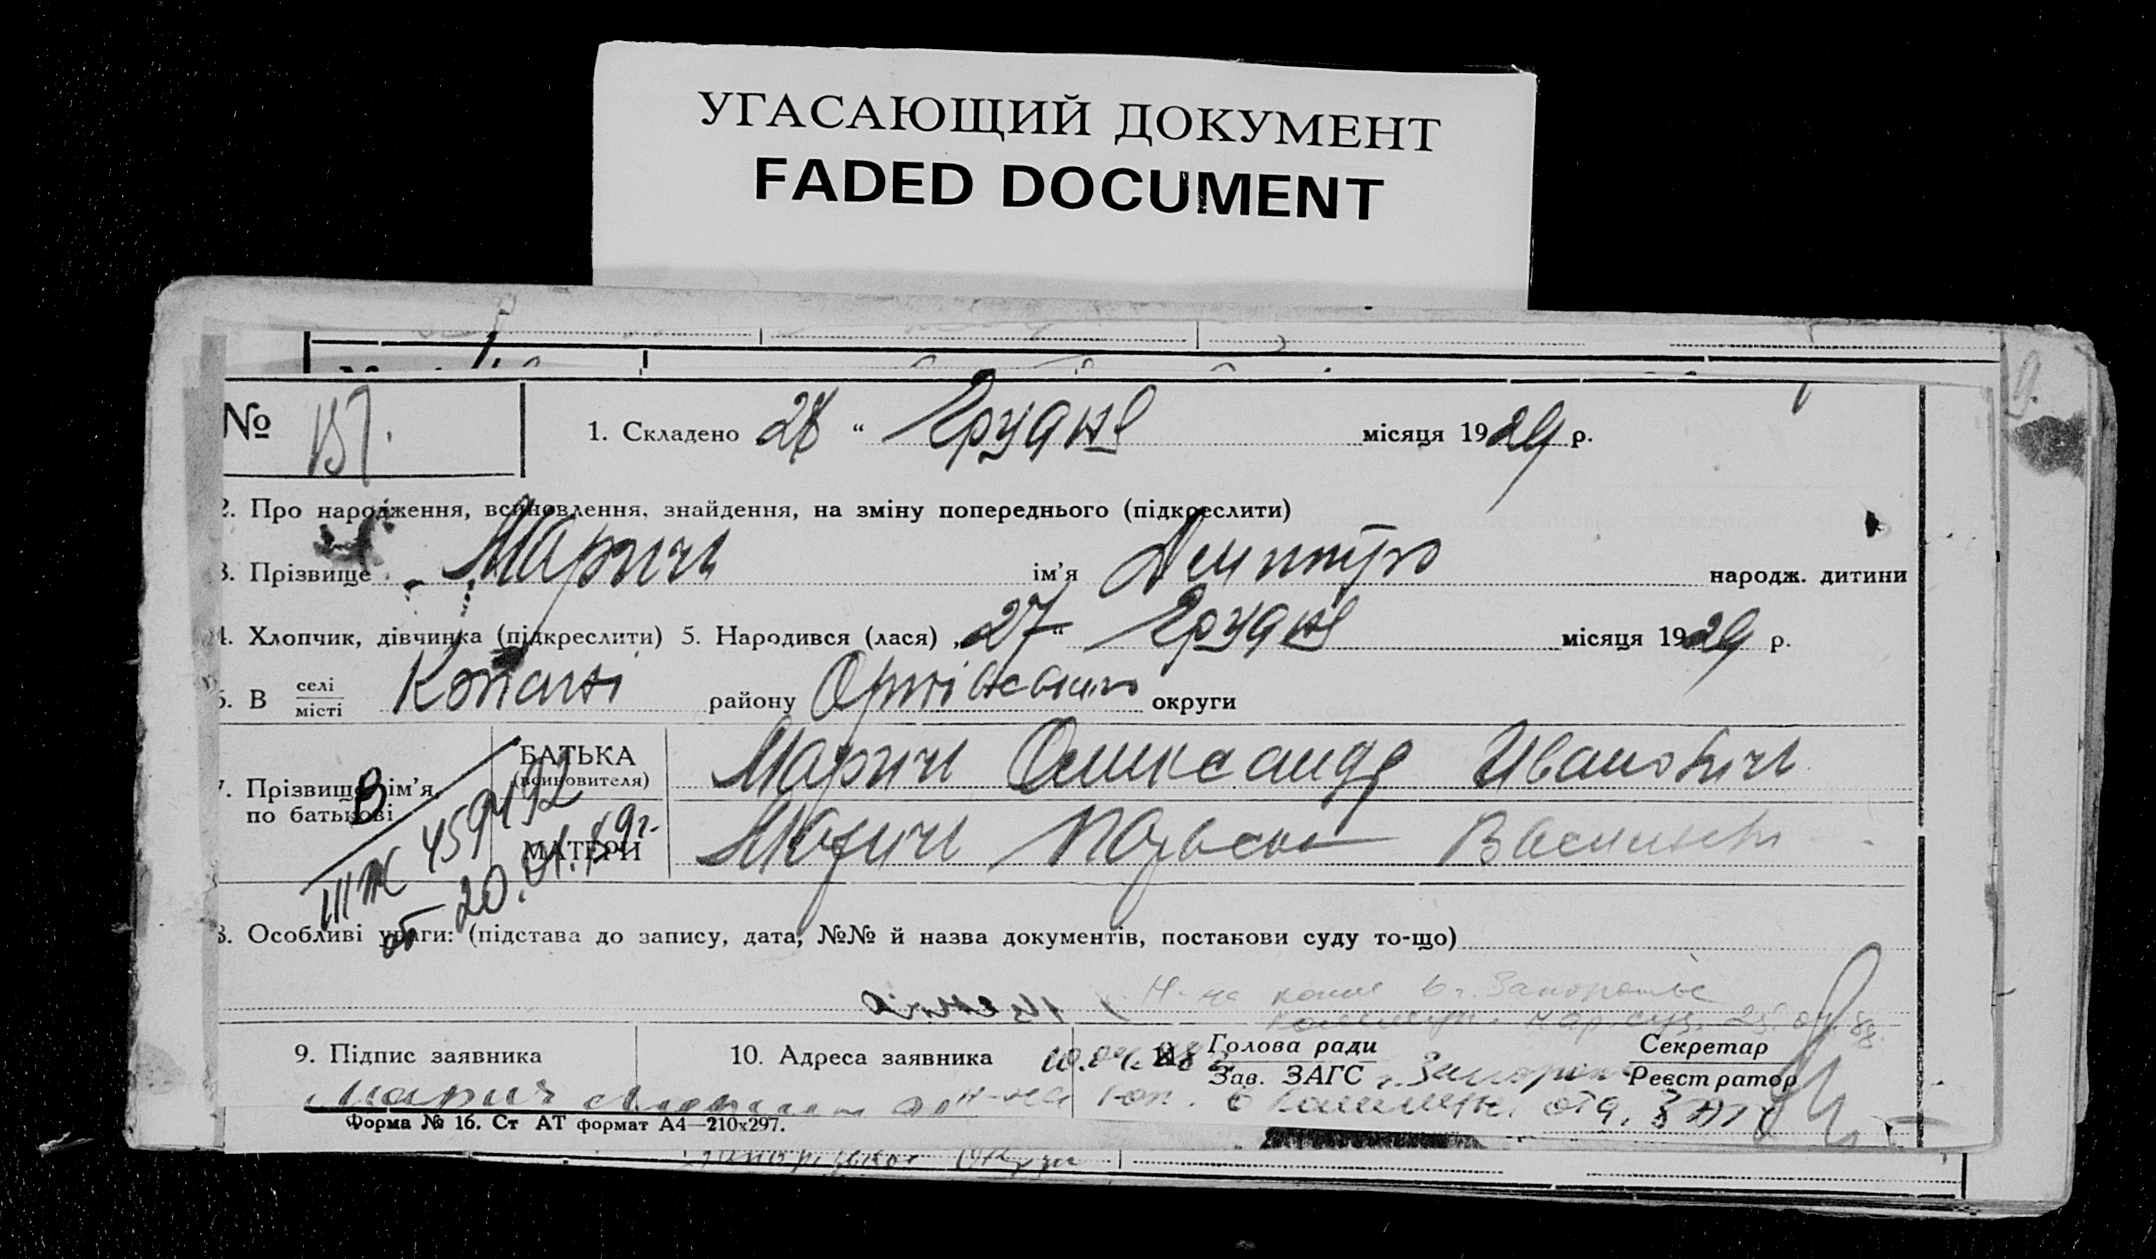 УГАСАЮЩИЙ ДОКУМЕНТ
FADED DOCUMENT
№ 157. 1. Складено 28 “ Грудня місяця 1929 р.
2. Про народження, всиновлення, знайдення, на зміну попереднього (підкреслити)
3. Прізвище Марич ім’я Дмитро народж. дитини
4. Хлопчик, дівчинка (підкреслити) 5. Народився (лася) „27“ Грудня місяця 1929 р.
6. В селі місті Копані району Оріхівського округи
7. Прізвище, ім’я, по батькові
БАТЬКА (всиновителя) Марич Олександр Иванович
МАТЕРИ Марич Параска Василівна
III Ж 459492
от 20.01.49г.
8. Особливі уваги: (підстава до запису, дата, №№ й назва документів, постанови суду то-що)
н-на копия в г. Запорожье
нар. суд
9. Підпис заявника 10. Адреса заявника Голова ради Секретар
Зав. ЗАГС Реєстратор
Марич
Форма № 16. Ст АТ формат А4—210х297.